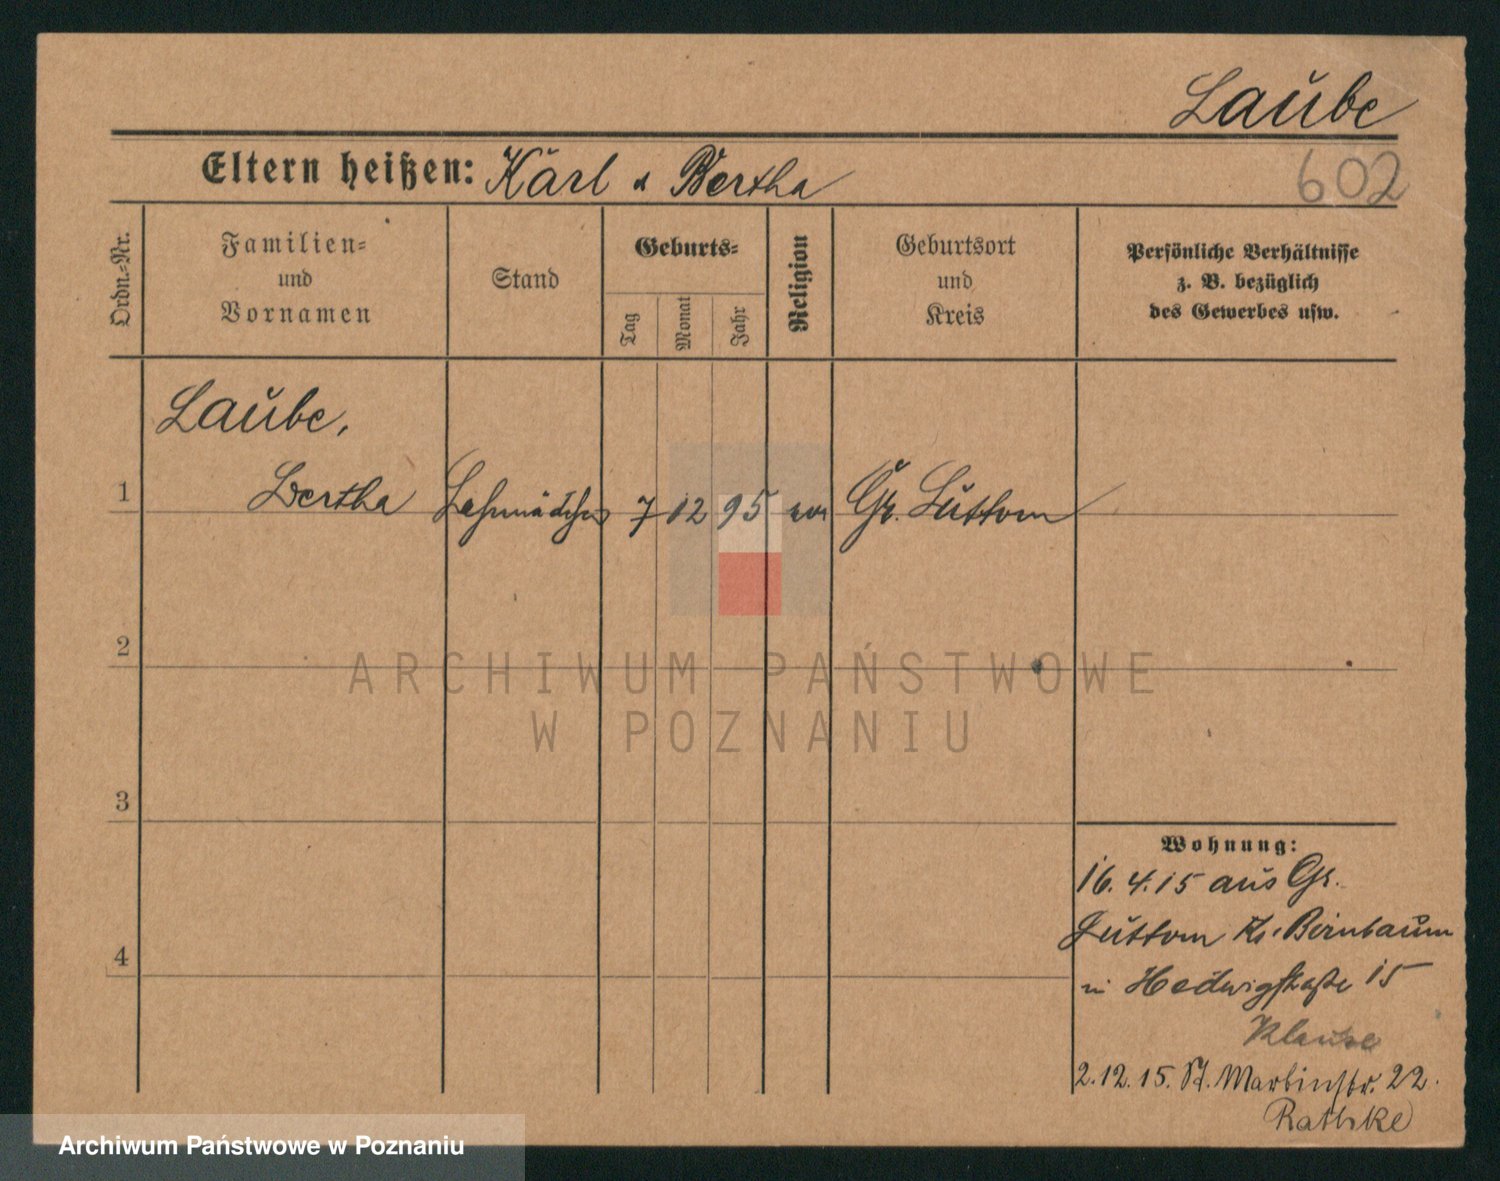 Laube
Eltern heißen: Karl u Bertha
602
Ordn.-Nr.
Familien-
und
Vornamen
Stand
Geburts-
Tag
Monat
Jahr
Religion
Geburtsort
und
Kreis
Persönliche Verhältnisse
z. B. bezüglich
des Gewerbes usw.
Laube,
1 Bertha Lehrmädchen 7 12 95 ev Gr. Luttom
2
ARCHIWUM PAŃSTWOWE
W POZNANIU
3
Wohnung:
16.4.15 aus Gr.
Luttom Kr. Birnbaum
in Hedwigstraße 15
4
Klause
2.12.15. St. Martinstr. 22.
Rathke
Archiwum Państwowe w Poznaniu